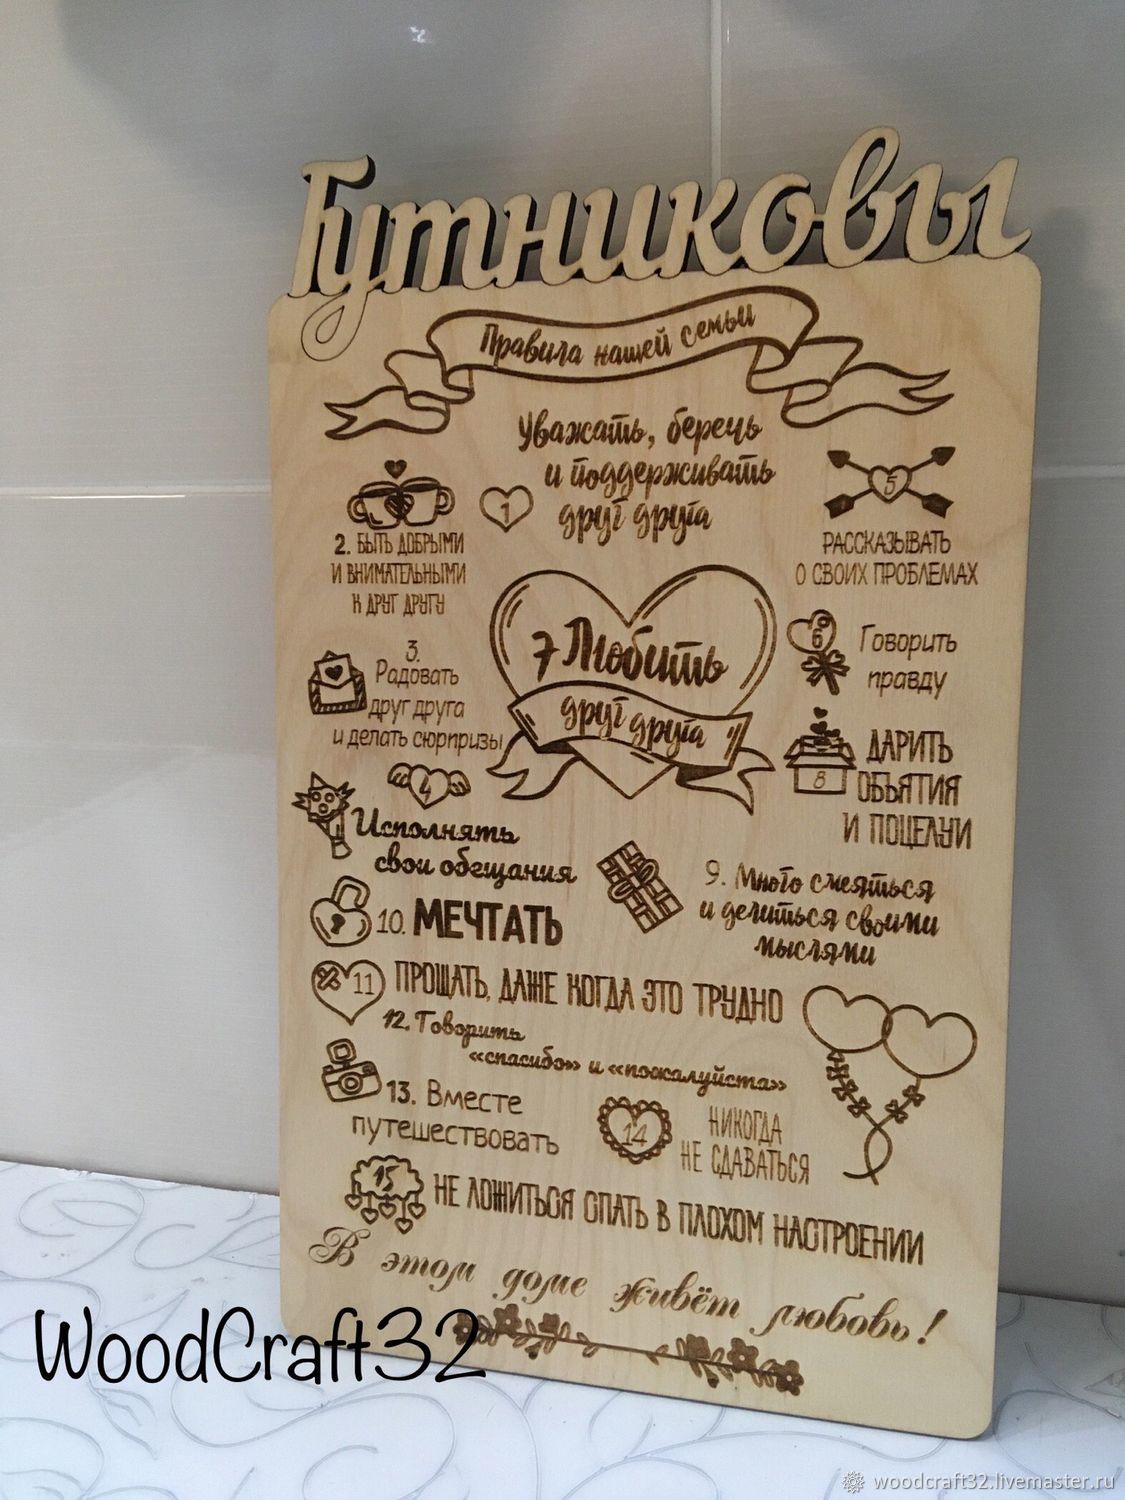 Гутниковы
Правила нашей семьи
Уважать, беречь
1 и поддерживать
друг друга
2. БЫТЬ ДОБРЫМИ
И ВНИМАТЕЛЬНЫМИ
К ДРУГ ДРУГУ
3.
Радовать
друг друга
и делать сюрпризы
4
Исполнять
свои обещания
5
РАССКАЗЫВАТЬ
О СВОИХ ПРОБЛЕМАХ
6 Говорить
правду
7 Любить
друг друга
ДАРИТЬ
8 ОБЪЯТИЯ
И ПОЦЕЛУИ
9. Много смеяться
и делиться своими
мыслями
10. МЕЧТАТЬ
11 ПРОЩАТЬ, ДАЖЕ КОГДА ЭТО ТРУДНО
12. Говорить
«спасибо» и «пожалуйста»
13. Вместе
путешествовать
14 НИКОГДА
НЕ СДАВАТЬСЯ
15 НЕ ЛОЖИТЬСЯ СПАТЬ В ПЛОХОМ НАСТРОЕНИИ
В этом доме живёт любовь!
WoodCraft32
woodcraft32.livemaster.ru